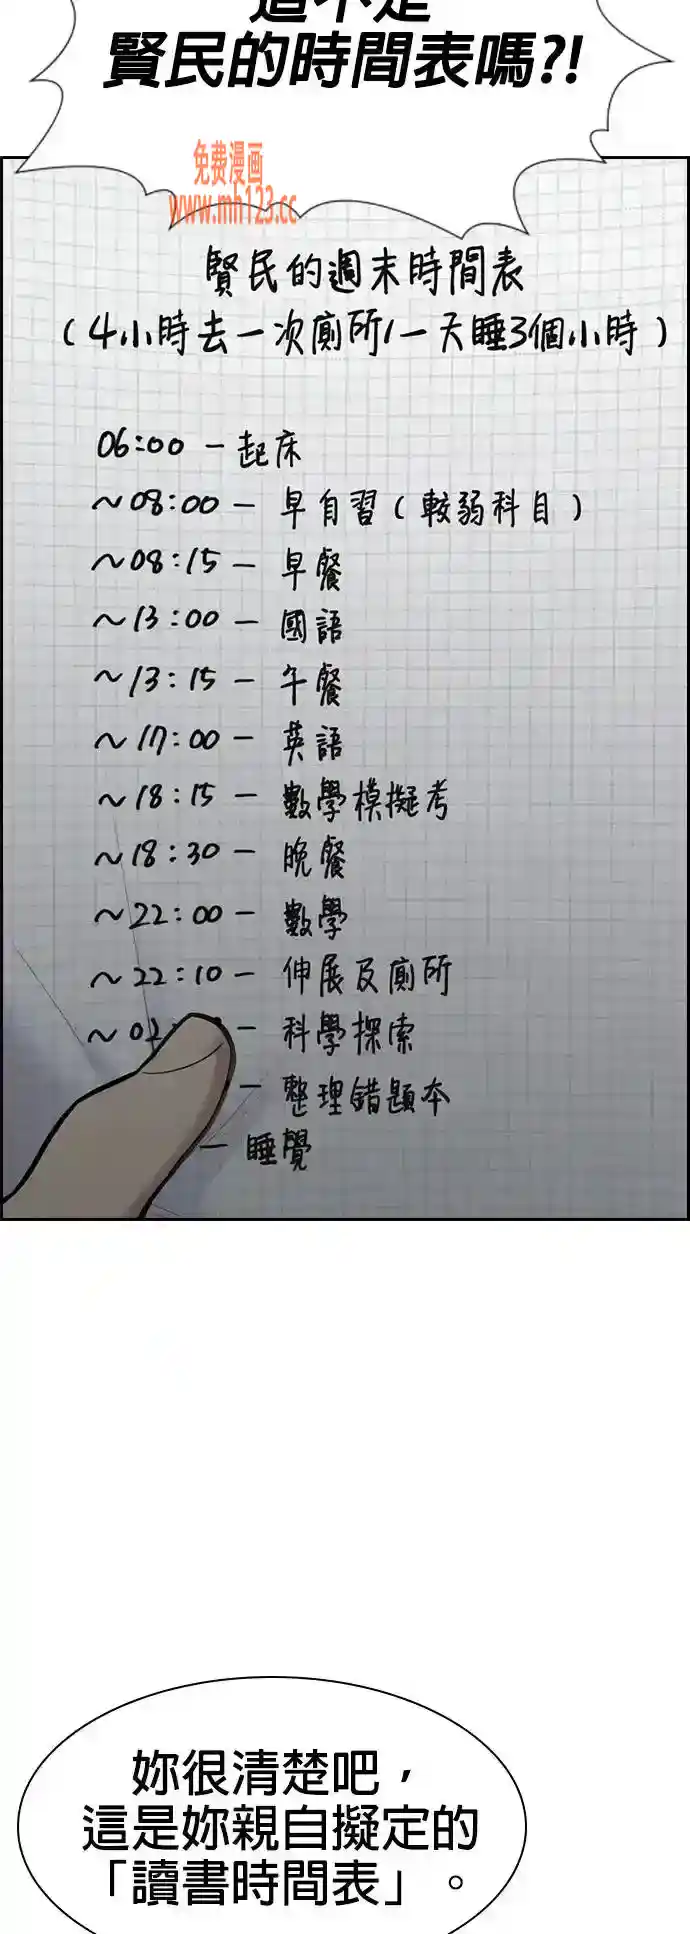 這不是
賢民的時間表嗎?!
免费漫画
www.mh123.cc
賢民的週末時間表
(4小時去一次廁所/一天睡3個小時)
06:00 - 起床
~08:00 - 早自習(較弱科目)
~08:15 - 早餐
~13:00 - 國語
~13:15 - 午餐
~17:00 - 英語
~18:15 - 數學模擬考
~18:30 - 晚餐
~22:00 - 數學
~22:10 - 伸展及廁所
~02: - 科學探索
- 整理錯題本
- 睡覺
妳很清楚吧，
這是妳親自擬定的
「讀書時間表」。